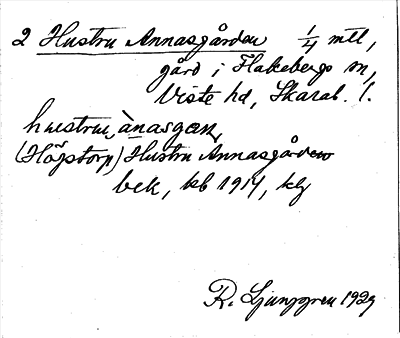 2 Hustru Annasgården 1/4 mtl,
gård i Flakebergs sn,
Viste hd, Skarab. l.
hustru,ànasgaʀ,
(Högstorp) Hustru Annasgården
bek, kb 1914, klg
R. Ljunggren 1929